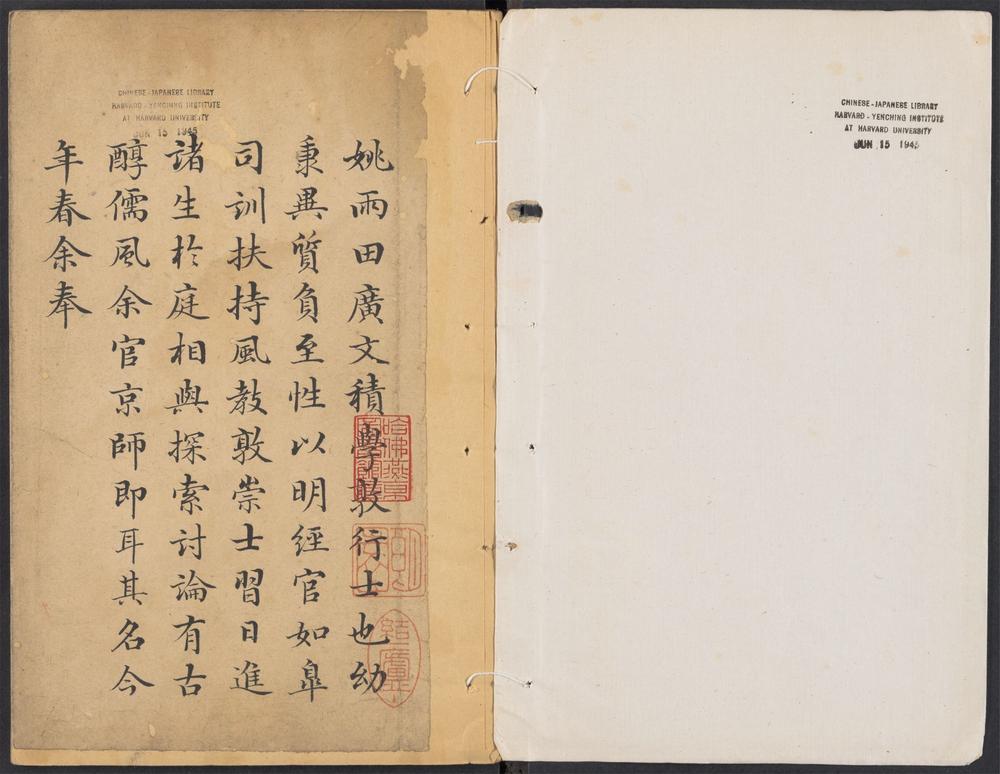 姚雨田廣文積學敦行士也幼
秉異質負至性以明經官如臯
司訓扶持風教敦崇士習日進
諸生於庭相與探索討論有古
醇儒風余官京師即耳其名今
年春余奉
CHINESE-JAPANESE LIBRARY
HARVARD-YENCHING INSTITUTE
AT HARVARD UNIVERSITY
JUN 15 1945
CHINESE-JAPANESE LIBRARY
HARVARD-YENCHING INSTITUTE
AT HARVARD UNIVERSITY
JUN 15 1945